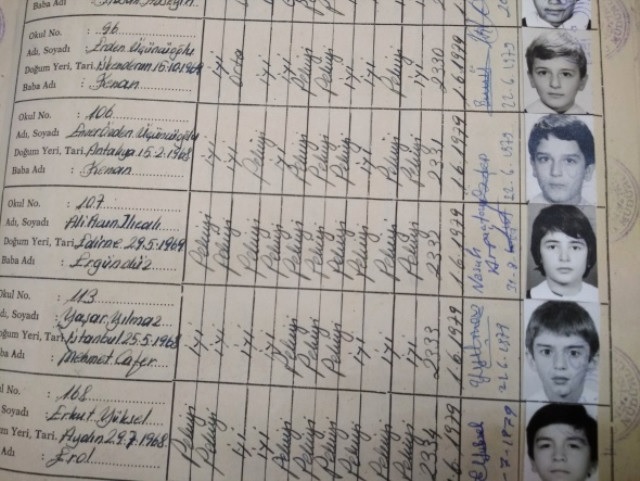 Baba Adı
Okul No. : 96
Adı, Soyadı : Erden Üçüncüoğlu
Doğum Yeri, Tari. İskenderun 15.10.1969
Baba Adı : Kenan
iyi Orta iyi Pekiyi Pekiyi iyi Pekiyi iyi Pekiyi 2330 1.6.1979
22.6.1979
Okul No. : 106
Adı, Soyadı : Üçüncüoğlu
Doğum Yeri, Tari. Antakya 15.2.1968
Baba Adı : Kenan
iyi iyi Pekiyi iyi Pekiyi Pekiyi iyi Pekiyi Pekiyi 2331 1.6.1979
22.6.1979
Okul No. : 107
Adı, Soyadı : Ali
Doğum Yeri, Tari. Edirne 29.5.1969
Baba Adı : Ergündüz
Pekiyi Pekiyi Pekiyi Pekiyi Pekiyi Pekiyi Pekiyi Pekiyi Pekiyi 2332 1.6.1979
Okul No. : 113
dı, Soyadı : Yaşar Yılmaz
oğum Yeri, Tari. İstanbul 25.5.1968
ba Adı : Mehmet Cafer
iyi iyi iyi iyi Pekiyi Pekiyi Pekiyi iyi iyi iyi 2333 1.6.1979
Y Yılmaz
ul No. : 168
Soyadı : Erkut Yüksel
m Yeri, Tari. Aydın 29.7.1968
Adı : Erol
Pekiyi Pekiyi iyi iyi Pekiyi Pekiyi Pekiyi Pekiyi Pekiyi 2334 1.6.1979